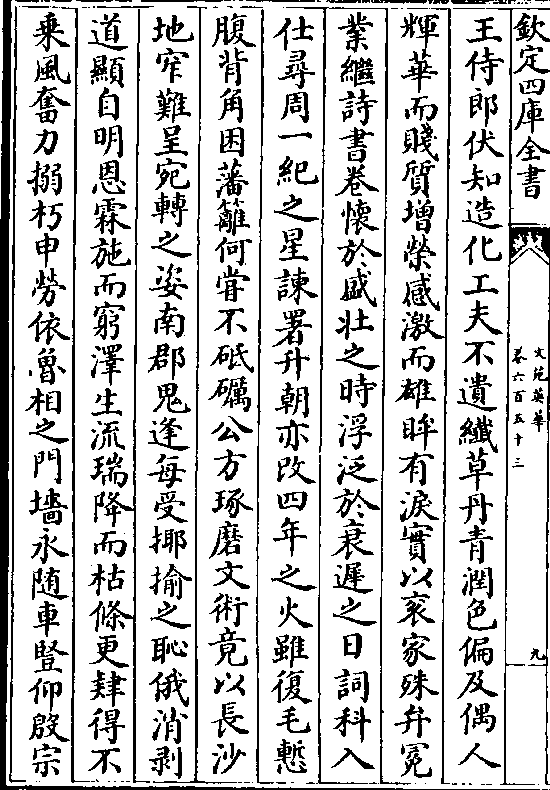 欽定四庫全書
文苑英華
卷六百五十三
九
王侍郎伏知造化工夫不遺纎草丹青潤色偏及偶人
輝華而賤質增榮感激而雄眸有淚實以衮家殊弁冕
業繼詩書卷懷於盛壯之時浮泛於衰遲之日詞科入
仕尋周一紀之星諫署升朝亦改四年之火雖復毛慙
腹背角困藩籬何甞不砥礪公方琢磨文術竟以長沙
地窄難呈宛轉之姿南郡鬼逢每受揶揄之恥俄消剥
道顯自明恩霖施而窮澤生流瑞降而枯條更肄得不
乗風奮力搦朽申勞依魯相之門墻永随車豎仰殷宗